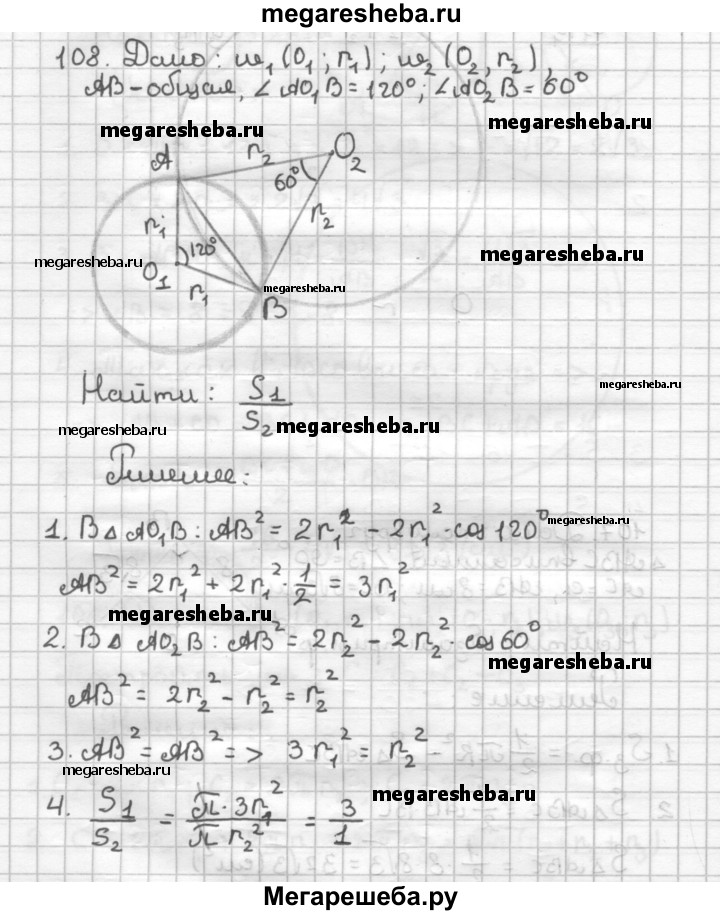 megaresheba.ru
108. Дано: ω₁ (O₁; r₁); ω₂ (O₂, r₂),
AB – общая, ∠AO₁B = 120°; ∠AO₂B = 60°
megaresheba.ru
megaresheba.ru
A r₂ O₂
60°
r₂
r₁
120°
megaresheba.ru
megaresheba.ru
O₁
r₁
megaresheba.ru
B
Найти: S₁/S₂
megaresheba.ru
megaresheba.ru
megaresheba.ru
Решение:
1. В Δ AO₁B: AB² = 2r₁² – 2r₁² · cos 120°
megaresheba.ru
AB² = 2r₁² + 2r₁² · 1/2 = 3r₁²
megaresheba.ru
2. В Δ AO₂B: AB² = 2r₂² – 2r₂² · cos 60°
megaresheba.ru
AB² = 2r₂² – r₂² = r₂²
3. AB² = AB² => 3r₁² = r₂²
megaresheba.ru
megaresheba.ru
4. S₁/S₂ = π · 3r₁²/π r₂² = 3/1
Мегарешеба.ру